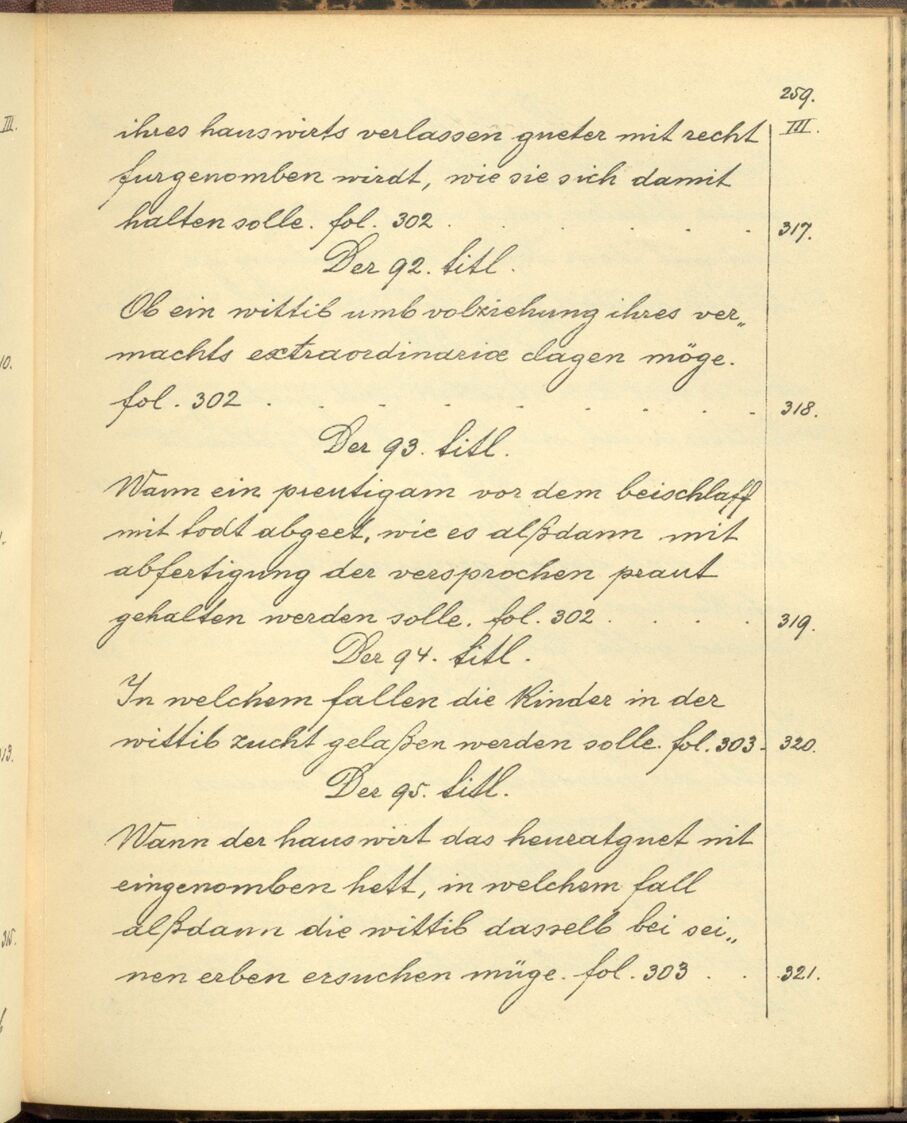 259.
III.
ihres hauswirts verlassen gueter mit recht
furgenomben wirdt, wie sie sich damit
halten solle. fol. 302 . . . . . . 317.
Der 92. titl.
Ob ein wittib umb volziehung ihres ver„
machts extraordinariæ clagen möge.
fol. 302 . . . . . . . . 318.
Der 93. titl.
Wann ein preutigam vor dem beischlaff
mit todt abgeet, wie es alßdann mit
abfertigung der versprochen praut
gehalten werden solle. fol. 302 . . . . 319.
Der 94. titl.
In welchem fallen die Kinder in der
wittib zucht gelaßen werden solle. fol. 303. 320.
Der 95. titl.
Wann der hauswirt das heuratguet nit
eingenomben hett, in welchem fall
alßdann die wittib dasselb bei sei„
nen erben ersuchen müge. fol. 303 . . 321.
III.
10.
13.
315.